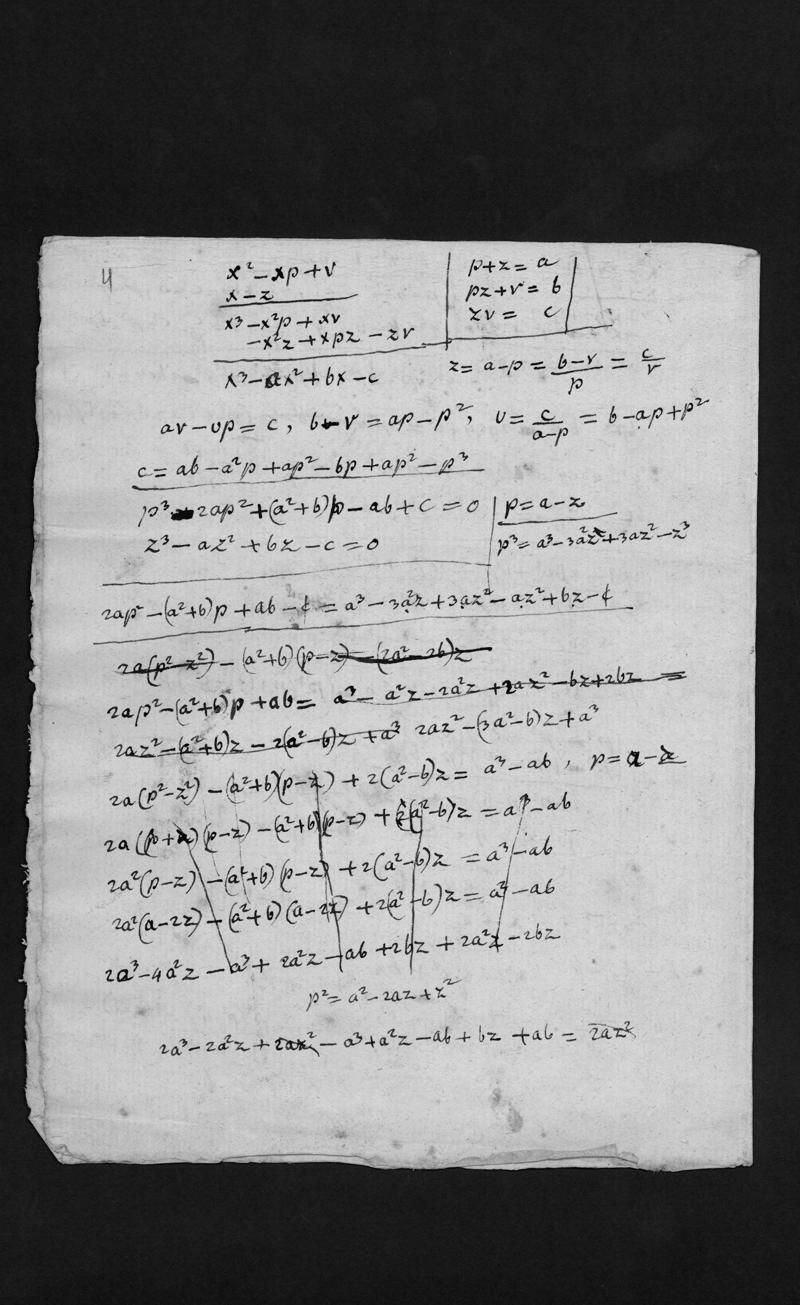 4
x² − xp + v
x − z
x³ − x²p + xv
− x²z + xpz − zv
x³ − ax² + bx − c
p + z = a
pz + v = b
zv = c
z = a − p = (b − v)/p = c/v
av − vp = c, b − v = ap − p², v = c/(a − p) = b − ap + p²
c = ab − a²p + ap² − bp + ap² − p³
p³ − 2ap² + (a² + b)p − ab + c = 0
p = a − z
z³ − az² + bz − c = 0
p³ = a³ − 3a²z + 3az² − z³
2ap² − (a² + b)p + ab − c = a³ − 3a²z + 3az² − az² + bz − c
2a(p² − z²) − (a² + b)(p − z) = (2a² − 2b)z
2ap² − (a² + b)p + ab = a³ − a²z − 2a²z + 2az² − bz + 2bz =
2az² − (a² + b)z − 2(a² − b)z + a³ 2az² − (3a² − b)z + a³
2a(p² − z²) − (a² + b)(p − z) + 2(a² − b)z = a³ − ab, p = a − z
2a(p + z)(p − z) − (a² + b)(p − z) + 2(a² − b)z = a³ − ab
2a²(p − z) − (a² + b)(p − z) + 2(a² − b)z = a³ − ab
2a²(a − 2z) − (a² + b)(a − 2z) + 2(a² − b)z = a³ − ab
2a³ − 4a²z − a³ + 2a²z − ab + 2bz + 2a²z − 2bz
p² = a² − 2az + z²
2a³ − 2a²z + 2az² − a³ + a²z − ab + bz + ab = 2az²